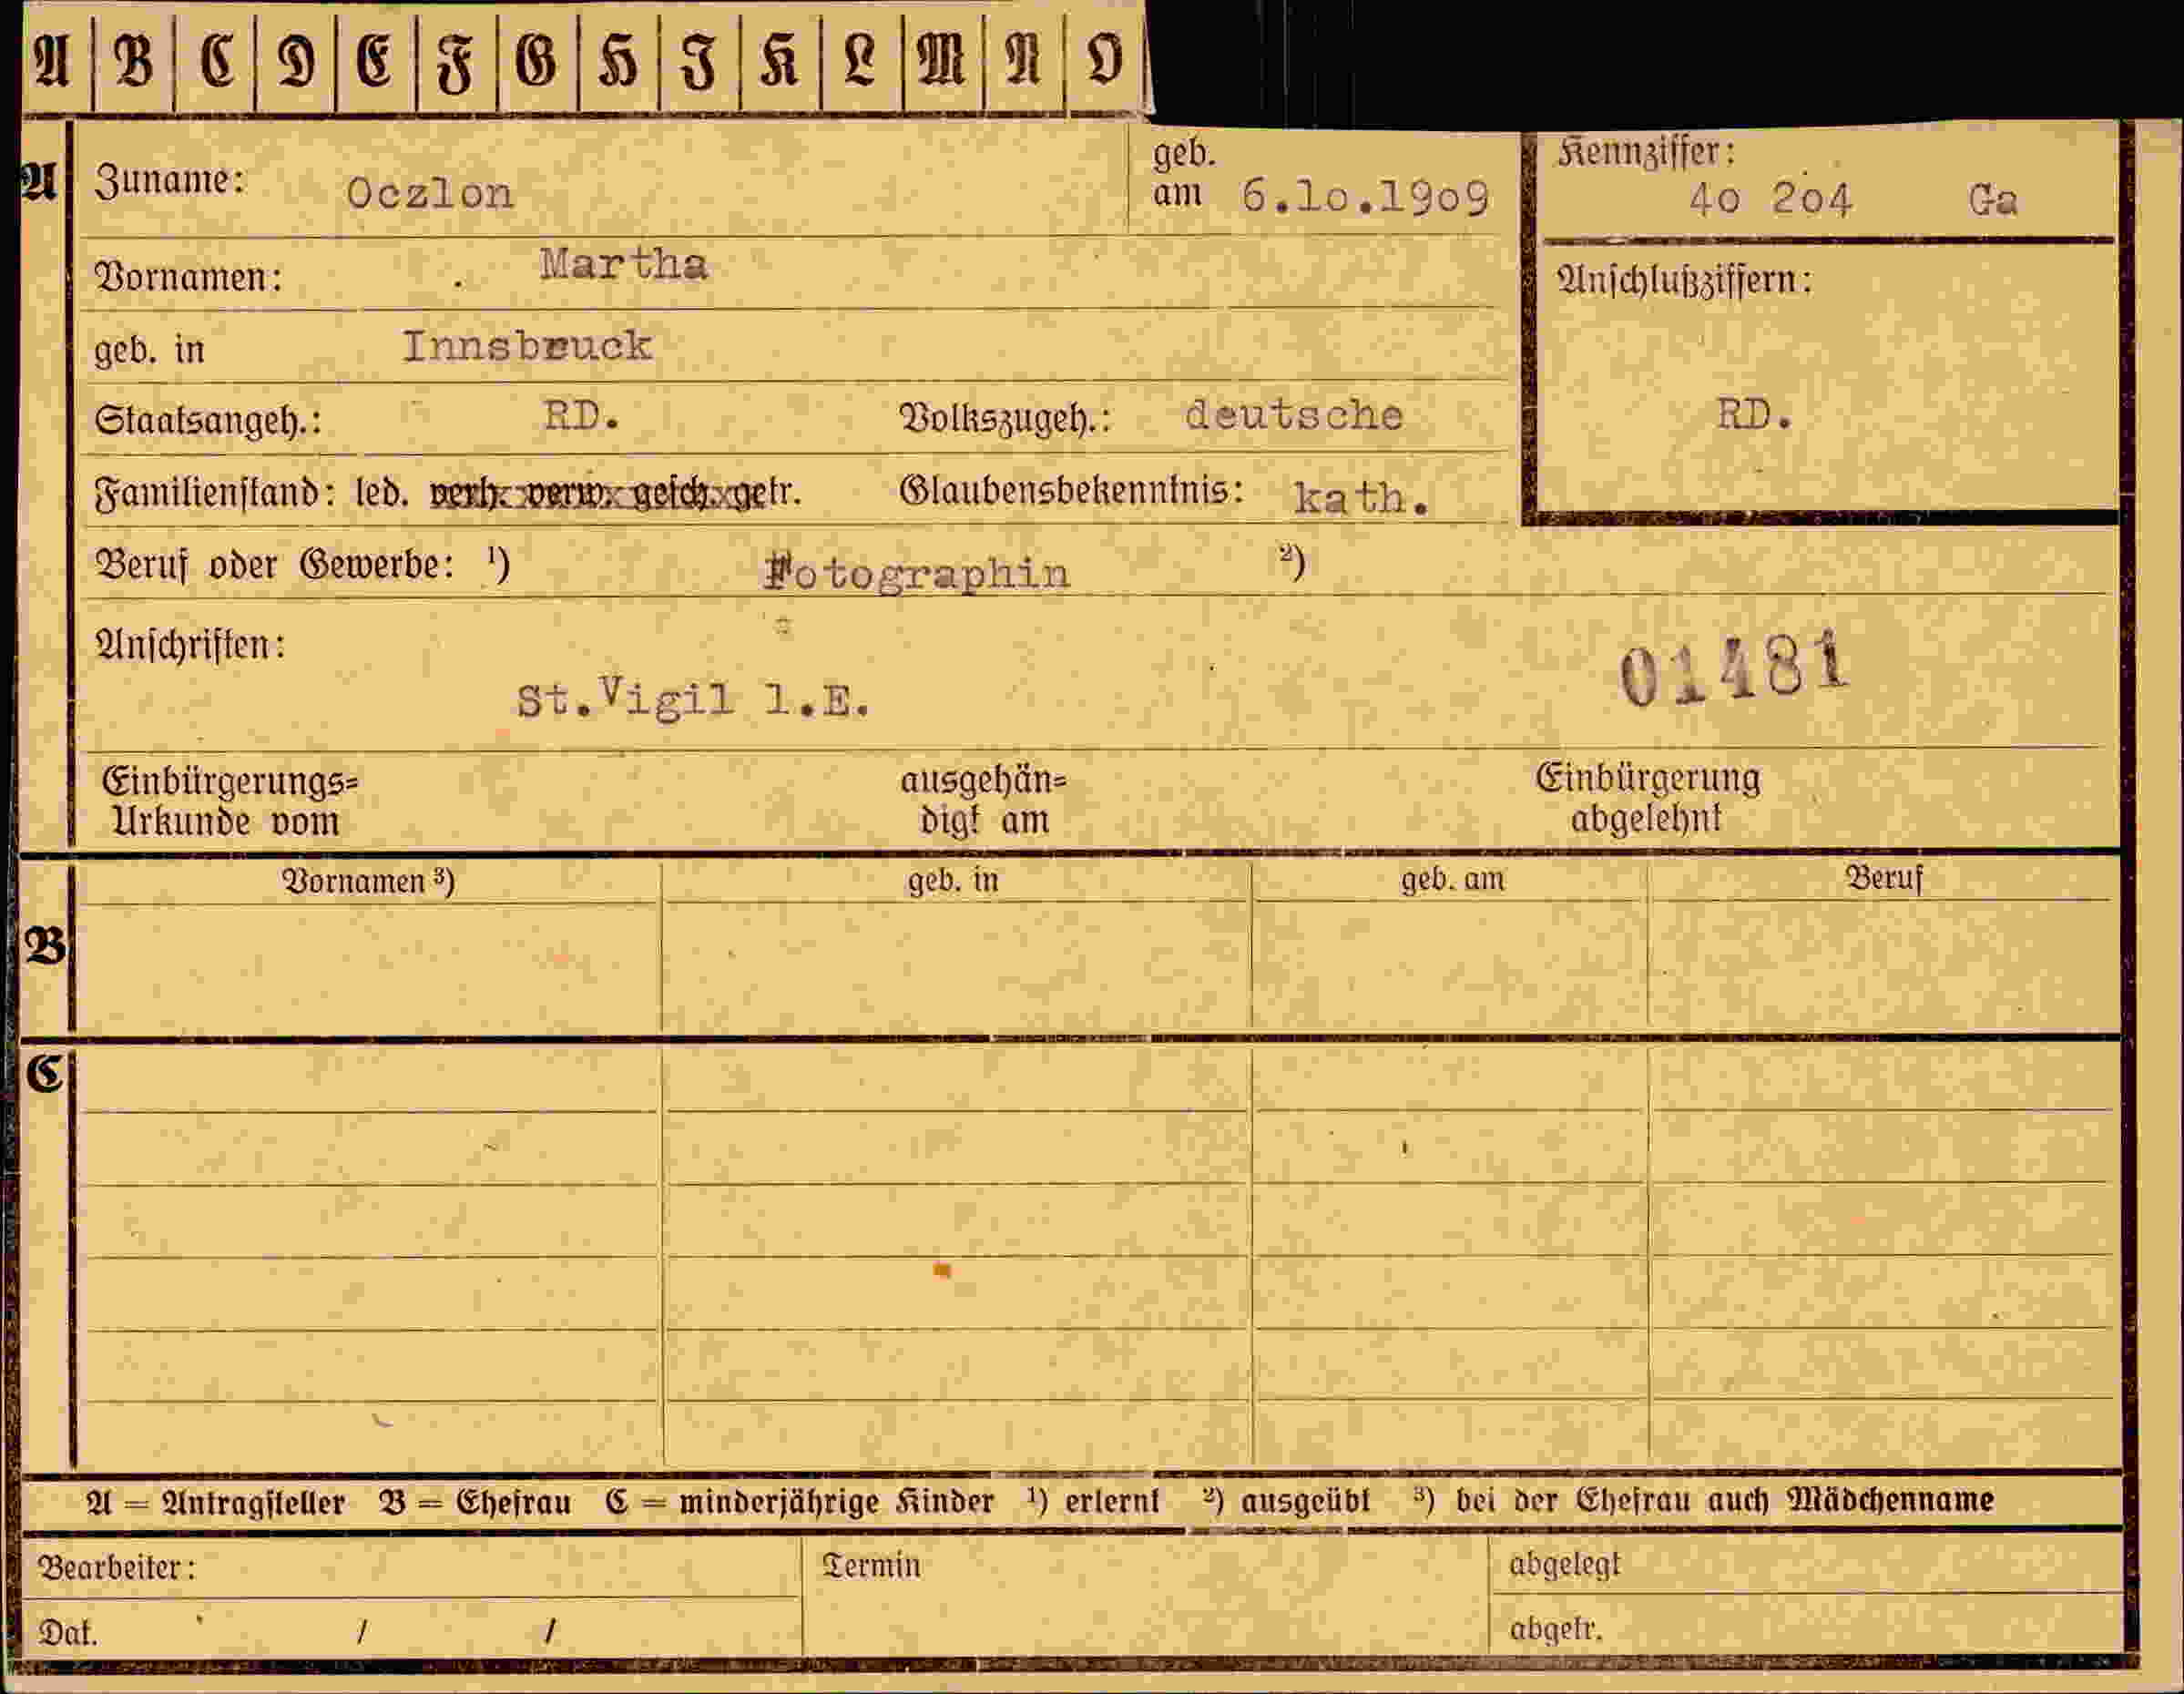 A B C D E F G H I K L M N O
A Zuname: Oczlon geb. am 6.lo.19o9 Kennziffer: 4o 2o4 Ga
Vornamen: Martha Anschlußziffern:
geb. in Innsbruck
Staatsangeh.: RD. Volkszugeh.: deutsche RD.
Familienstand: led. verh. verw. gesch. getr. Glaubensbekenntnis: kath.
Beruf oder Gewerbe: ¹) Fotographin ²)
Anschriften: 01481
St.Vigil l.E.
Einbürgerungs= ausgehän= Einbürgerung
Urkunde vom digt am abgelehnt
Vornamen ³) geb. in geb. am Beruf
B
C
A = Antragsteller B = Ehefrau C = minderjährige Kinder ¹) erlernt ²) ausgeübt ³) bei der Ehefrau auch Mädchenname
Bearbeiter: Termin abgelegt
Dat. / / abgetr.